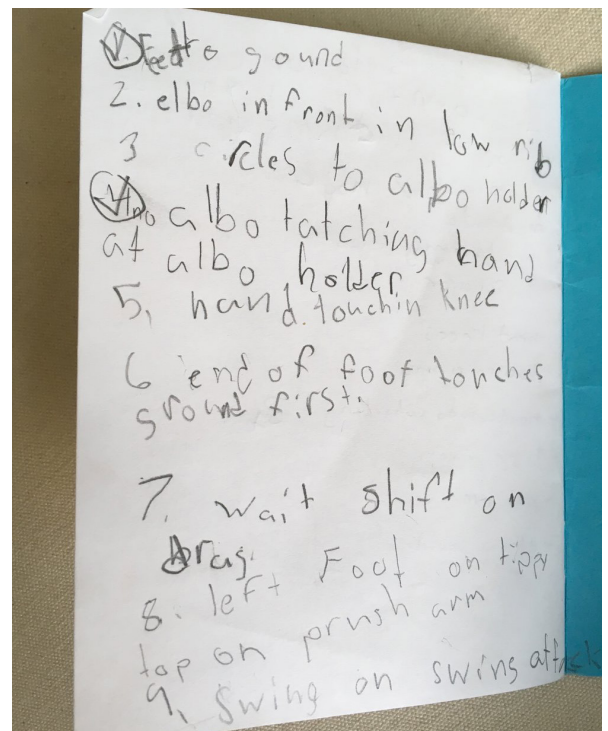 1. Feet to gound
2. elbo in front in low rib
3 circles to albo holder
4. no albo tatching hand
at albo holder
5. hand. touchin knee
6 end of foot touches
ground first.
7. wait shift on
Drag. Foot on tippy
8. left
top on prush arm
9. swing on swing attack